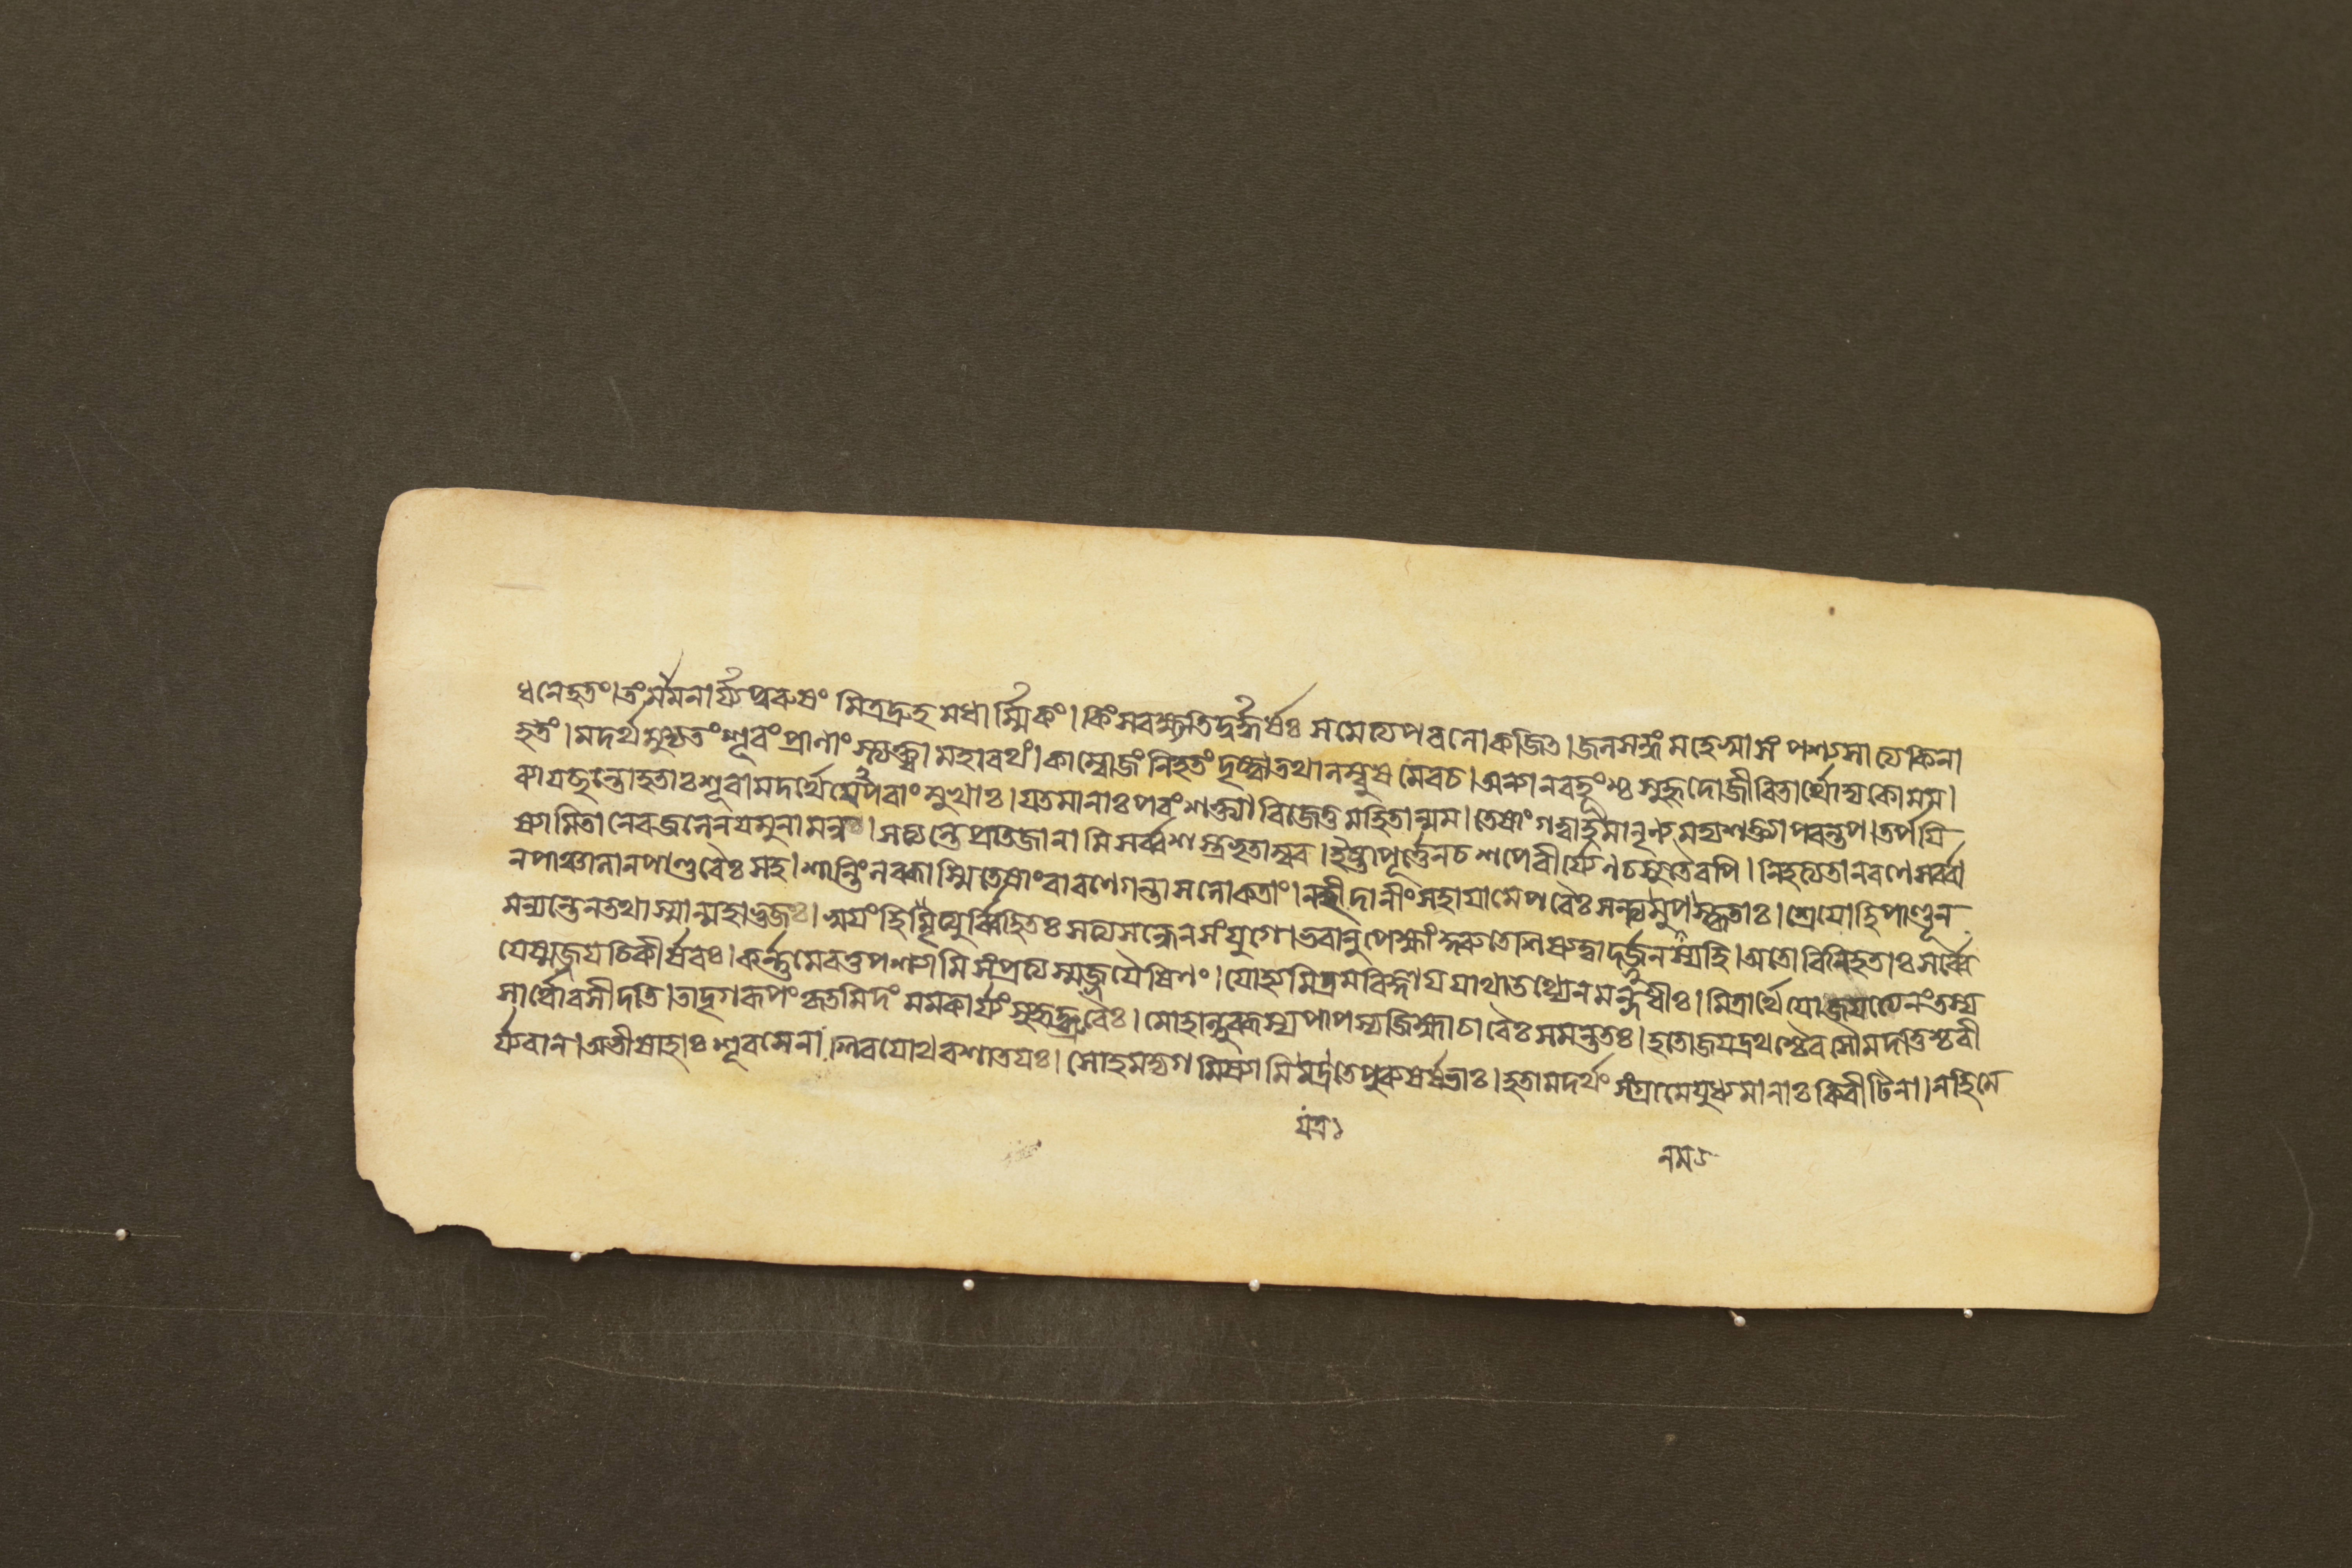 ধনেহতং।তংমমনার্য্যপুরুষং মিত্রদ্রুহমধার্ম্মিকং। কিংসবক্ষ্যতিদুর্দ্ধর্ষঃ সমেত্যপরলোকজিৎ।জলসন্ধং মহেষ্বাসং পশ্যসাত্যকিনা
হতং। মদর্থমুদ্যতংশূরংপ্রাণাংস্ত্যক্ত্বা মহারথং। কাম্বোজং নিহতং দৃষ্ট্বাতথালম্বুষমেবচ।অন্যানবহূংশ্চসুহৃদোজীবিতার্থোদ্যকোমম।
ব্যাযচ্ছন্তোহতাঃশূরামদর্থেযেপরাংমুখাঃ।যতমানাঃপরংশক্ত্যা বিজেতুমহিতান্মম।তেষাংগত্বাহমানৃণ্যমদ্যশক্ত্যাপরন্তপ।তর্পযি
ষ্যামিতানেবজলেনযমুনামনু।সত্যন্তেপ্রতিজানামিসর্ব্বশস্ত্রভৃতাম্বর।ইষ্টাপূর্ত্তেনচশপেবীর্য্যেণচসুতৈরপি। নিহত্যতানরণেসর্ব্বা
নপাঞ্চালানপাণ্ডবৈঃসহ।শান্তিংলব্ধাস্মিতেষাংবারণেগন্তাসলোকতাং।নহীদানীংসহাযামেপরৈঃসন্ত্যনুপস্কৃতাঃ।শ্রেযোহিপাণ্ডূন
মন্যন্তেনতথাস্মান্মহাভুজঃ।স্বযংহিমৃত্যুর্ব্বিহিতঃসত্যসন্ধেনসংযুগে।ভবানুপেক্ষাংকুরুতেশিষ্যত্বাদর্জুনস্যহি।অতোবিনিহতাঃসর্ব্বে
যেস্মজ্জযচিকীর্ষবঃ।কর্ণমেবতুপশ্যামিসংপ্রত্যস্মজ্জযৈষিণং।যোহিমিত্রমবিজ্ঞাযযাথাতথ্যেনমন্দধীঃ।মিত্রার্থেযোজযত্যেনংতস্য
সোর্থোবসীদতি।তাদৃগরূপংকৃতমিদংমমকার্য্যংসুহৃদ্ব্রুবৈঃ।মোহাল্লুব্ধস্যপাপস্যজিহ্মাচারৈঃসমন্ততঃ।হতোজযদ্রথশ্চৈবসৌমদত্তিশ্চবী
র্য্যবান।অভীষাহাঃশূরসেনাঃশিবযোথবশাতযঃ।সোহমদ্যগমিষ্যামিযত্রতেপুরুষর্ষভাঃ।হতামদর্থংসংগ্রামেযুধ্যমানাঃকিরীটিনা।নহিমে
যত্র১